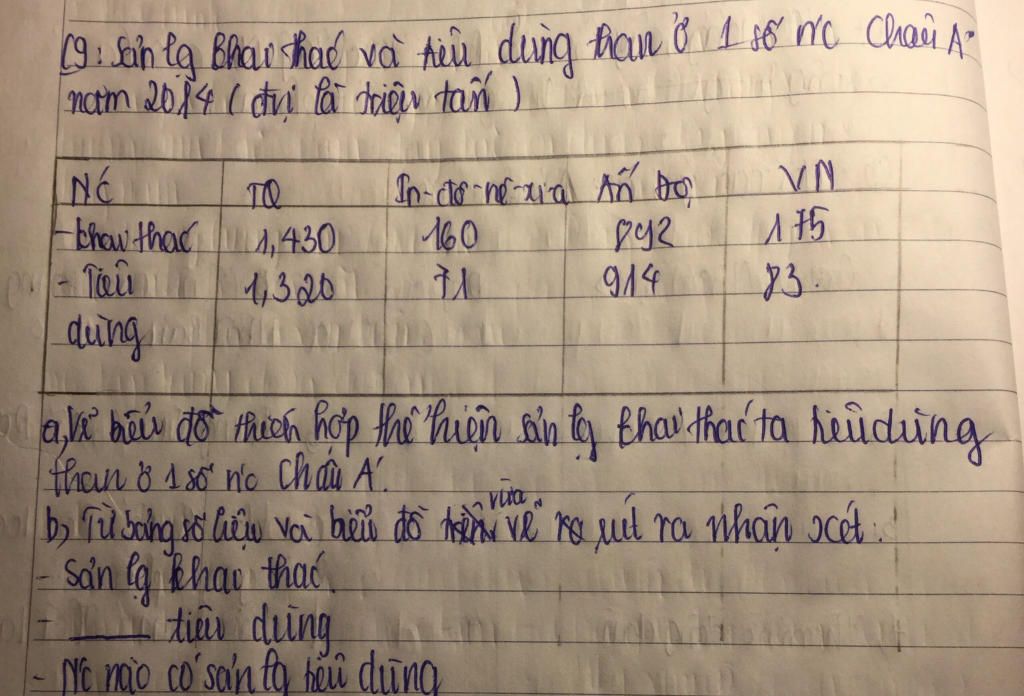 C9: Sản lg khai thác và tiêu dùng than ở 1 số nc Châu Á
năm 2014 (đvị là triệu tấn)
NC TQ In-đô-nê-xi-a Ấn Độ VN
- khai thác 1,430 160 892 175
- Tiêu 1,320 71 914 83.
dùng
a, Vẽ biểu đồ thích hợp thể hiện sản lg khai thác ta tiêu dùng
than ở 1 số nc Châu Á.
b, Từ bảng số liệu và biểu đồ vừa vẽ rút ra nhận xét.
- Sản lg khai thác.
- ____ tiêu dùng
- Nc nào có sản lg tiêu dùng